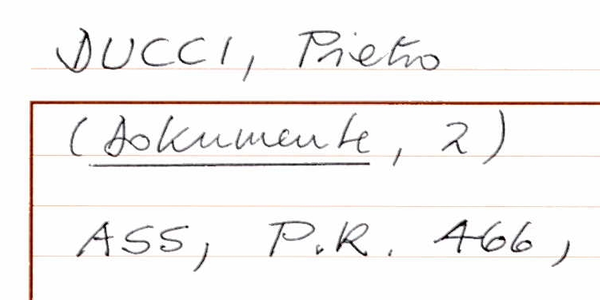 DUCCI, Pietro
(Dokumente, 2)
ASS, P.R. 466,